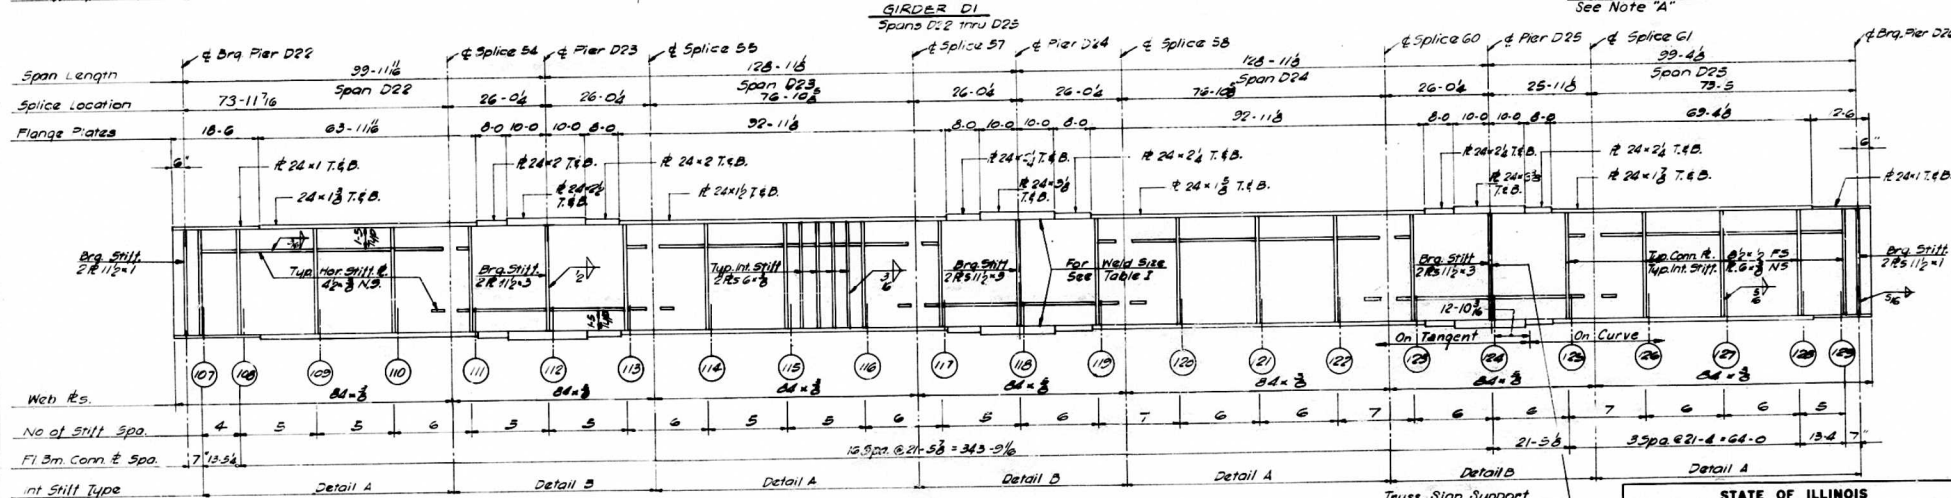 GIRDER D1
Spans D22 thru D25
See Note "A"
℄ Brg. Pier D22
℄ Splice 54
℄ Pier D23
℄ Splice 55
℄ Splice 57
℄ Pier D24
℄ Splice 58
℄ Splice 60
℄ Pier D25
℄ Splice 61
℄ Brg. Pier D26
Span Length
128-11⅛
128-11⅛
99-4⅛
Span D22
Span D23
Span D24
Span D25
Splice Location
26-0¼
26-0¼
26-0¼
26-0¼
26-0¼
25-11⅛
73-5
Flange Plates
18-6
8-0 10-0 10-0 8-0
92-11⅛
8-0 10-0 10-0 8-0
92-11⅛
8-0 10-0 10-0 8-0
69-4⅛
12-6
6"
℄ 24×1 T.&B.
℄ 24×2 T.&B.
℄ 24×2 T.&B.
℄ 24×2¼ T.&B.
℄ 24×2¼ T.&B.
℄ 24×2¼ T.&B.
6"
T.&B.
℄ 24×1½ T.&B.
℄ 24×3⅛ T.&B.
℄ 24×1⅝ T.&B.
T.&B.
℄ 24×1⅞ T.&B.
℄ 24×1 T.&B.
Brg. Stiff.
2 ℄ 11½×1
Typ. Hor. Stiff. ℄
N.S.
Brg. Stiff
2 ℄ 11½×3
Typ. Int. Stiff
2 ℄s 6×⅜
3/16
Brg. Stiff
2 ℄s 11½×3
For Weld Size
See Table I
Brg. Stiff
2 ℄s 11½×3
Typ. Conn. ℄. 8½×½ FS
Typ. Int. Stiff. ℄ 6×⅜ NS
5/16
Brg. Stiff.
2 ℄s 11½×1
5/16
12-10 3/16
On Tangent
On Curve
107 108 109 110 111 112 113 114 115 116 117 118 119 120 121 122 123 124 125 126 127 128 129
Web ℄s.
84×⅜
84×⅜
84×⅜
No of Stiff Spa.
4 5 5 6 5 5 6 5 5 6 5 6 7 6 6 7 6 6 7 6 6 5
Fl. Bm. Conn. ℄ Spa.
7"
16 Spa. @ 21-5⅞ = 343-9
21-5⅛
3 Spa. @ 21-4 = 64-0
13-4
7"
Int Stiff Type
Detail A
Detail B
Detail A
Detail B
Detail A
Detail B
Detail A
Truss Sign Support
STATE OF ILLINOIS